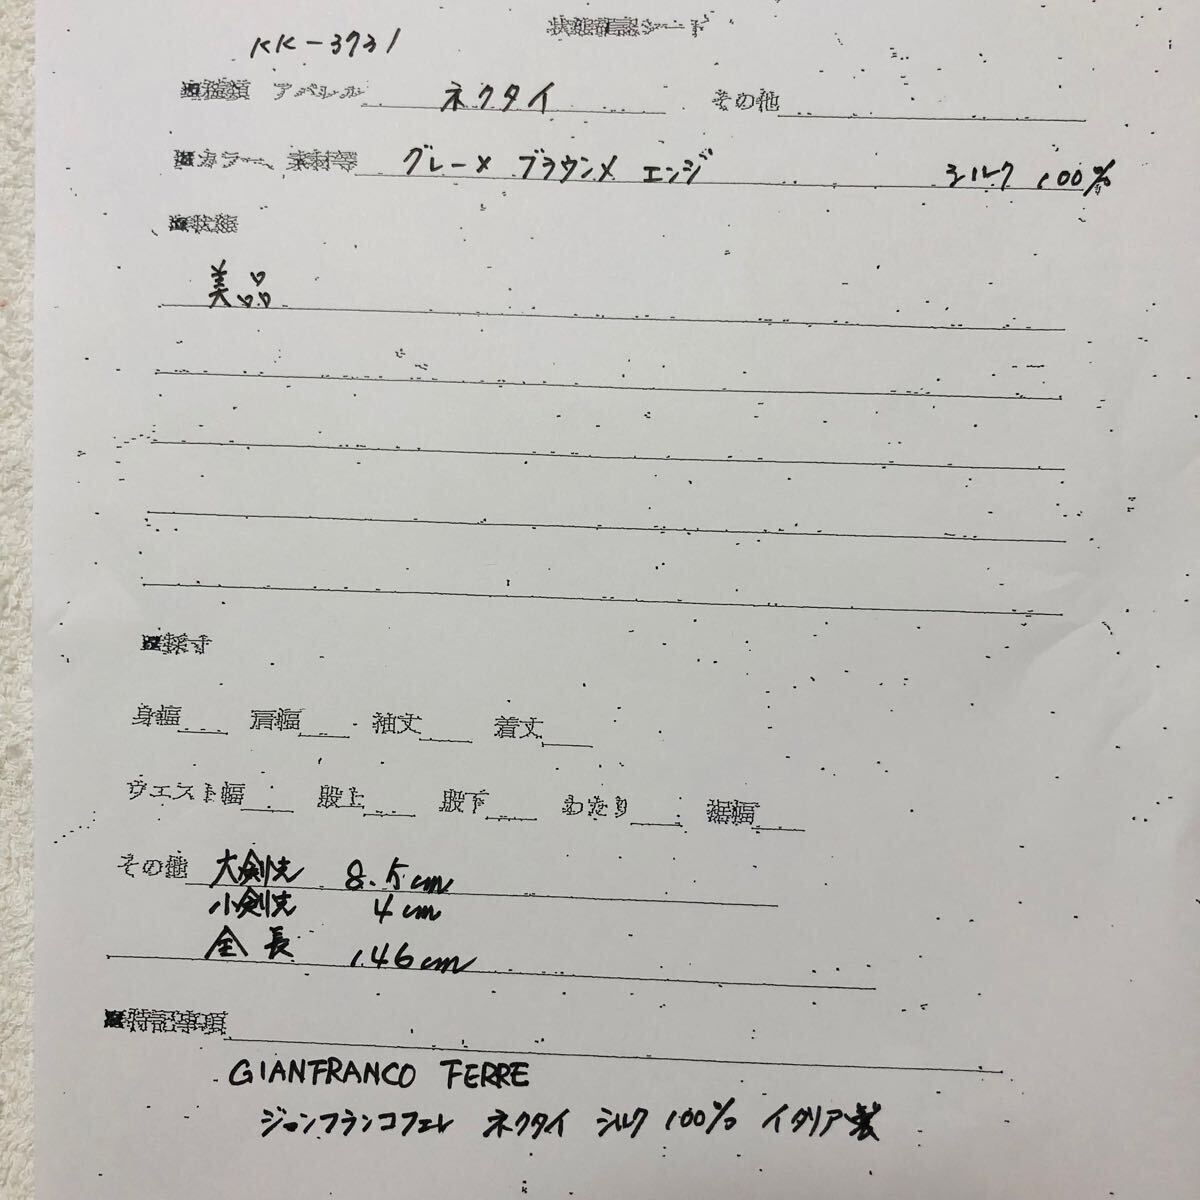 状態確認シート
KK-3731
■種類 アパレル ネクタイ その他
■カラー、素材等 グレー× ブラウン× エンジ シルク 100%
■状態
美品
■採寸
身幅 肩幅 袖丈 着丈
ウエスト幅 股上 股下 わたり 裾幅
その他 大剣先 8.5cm
小剣先 4cm
全長 146cm
■特記事項
GIANFRANCO FERRE
ジャンフランコフェレ ネクタイ シルク 100% イタリア製